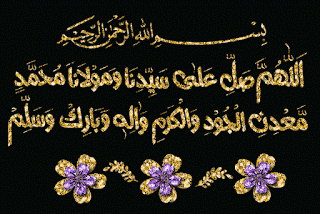 بِسْمِ اللهِ الرَّحْمٰنِ الرَّحِيْمِ
اَللّٰهُمَّ صَلِّ عَلٰى سَيِّدِنَا وَمَوْلَانَا مُحَمَّدٍ
مَّعْدِنِ الْجُوْدِ وَالْكَرَمِ وَاٰلِهٖ وَبَارِكْ وَسَلِّمْ